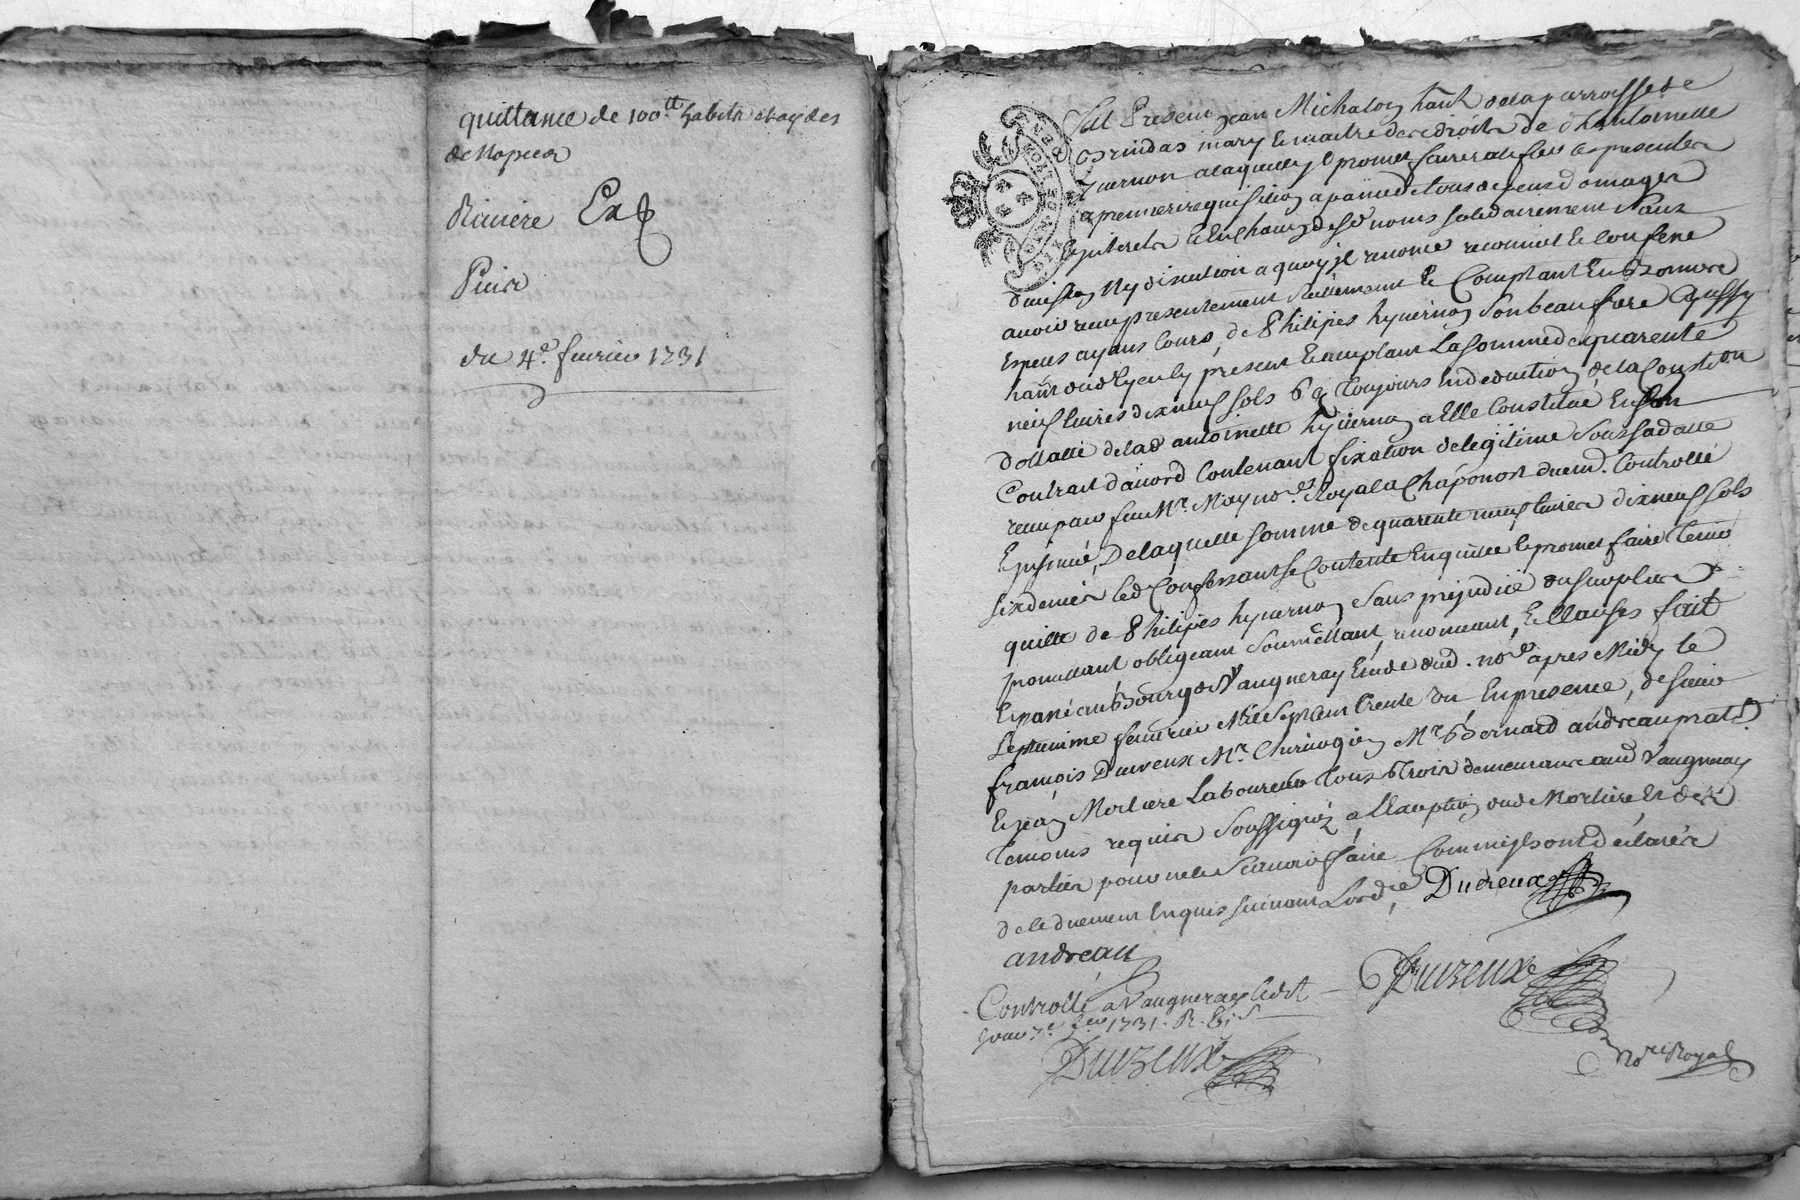 quittance de 100tt habits et aydes
de Nopces
Riviere Exp
Pierre
du 4e. fevrier 1731
fut Present jean Michalon hant de la parroisse de
mary Et maitre des droits de dhantoinette
hyvernon a laquelle promet faire ratifier Les presentes
a premiere requisition a paine de tous depens domages
Et interets Et En chacun desd noms solidairement sans
division Ny discution a quoy jl renonce reconnoit Et Confesse
avoir receu presentement reellement Et Comptant En bonnes
Especes ayans Cours, de Philipes hyvernon Son beau frere
hant dud lyeu Cy present Et acceptant La somme de quarente
neuf livres dix neuf sols 6 d toujours En deduction de la Conston
dottalle de lad antoinette hyvernon a Elle Constitué En son
Contrat daccord Contenant fixation de legitime Sous sa datte
receu par feu Me. Nore Royal a Chaponost duemt. Controllé
Et jnsinué, De laquelle somme de quarente neuf livres dix neuf sols
six deniers led Confessant se Contente En quitte Et promet faire tenir
quitte de Philipes hyvernon Sans prejudice du surplus
promettant obligeant Soumettant, renonceant, Et Clauses fait
Et passé au bourg de Vaugneray Etude dud. nore. apres Midy le
septieme fevrier Mil sept cent trente Un En presence, de sieur
françois Duvreux Me. Chirurgien Me Bernard andreau prat.
Et jean Mortiere Laboureur tous trois demeurans aud Vaugneray
temoins requis Soussignéz a L'Exception dud Mortiere Et des
parties pour ne le Scavoir faire Comme jls ont declarés
de ce duement Enquis suivant Lorde, Ducreux
andreau
Controllé a Vaugneray Cedit
jour 7e fevr 1731. R.